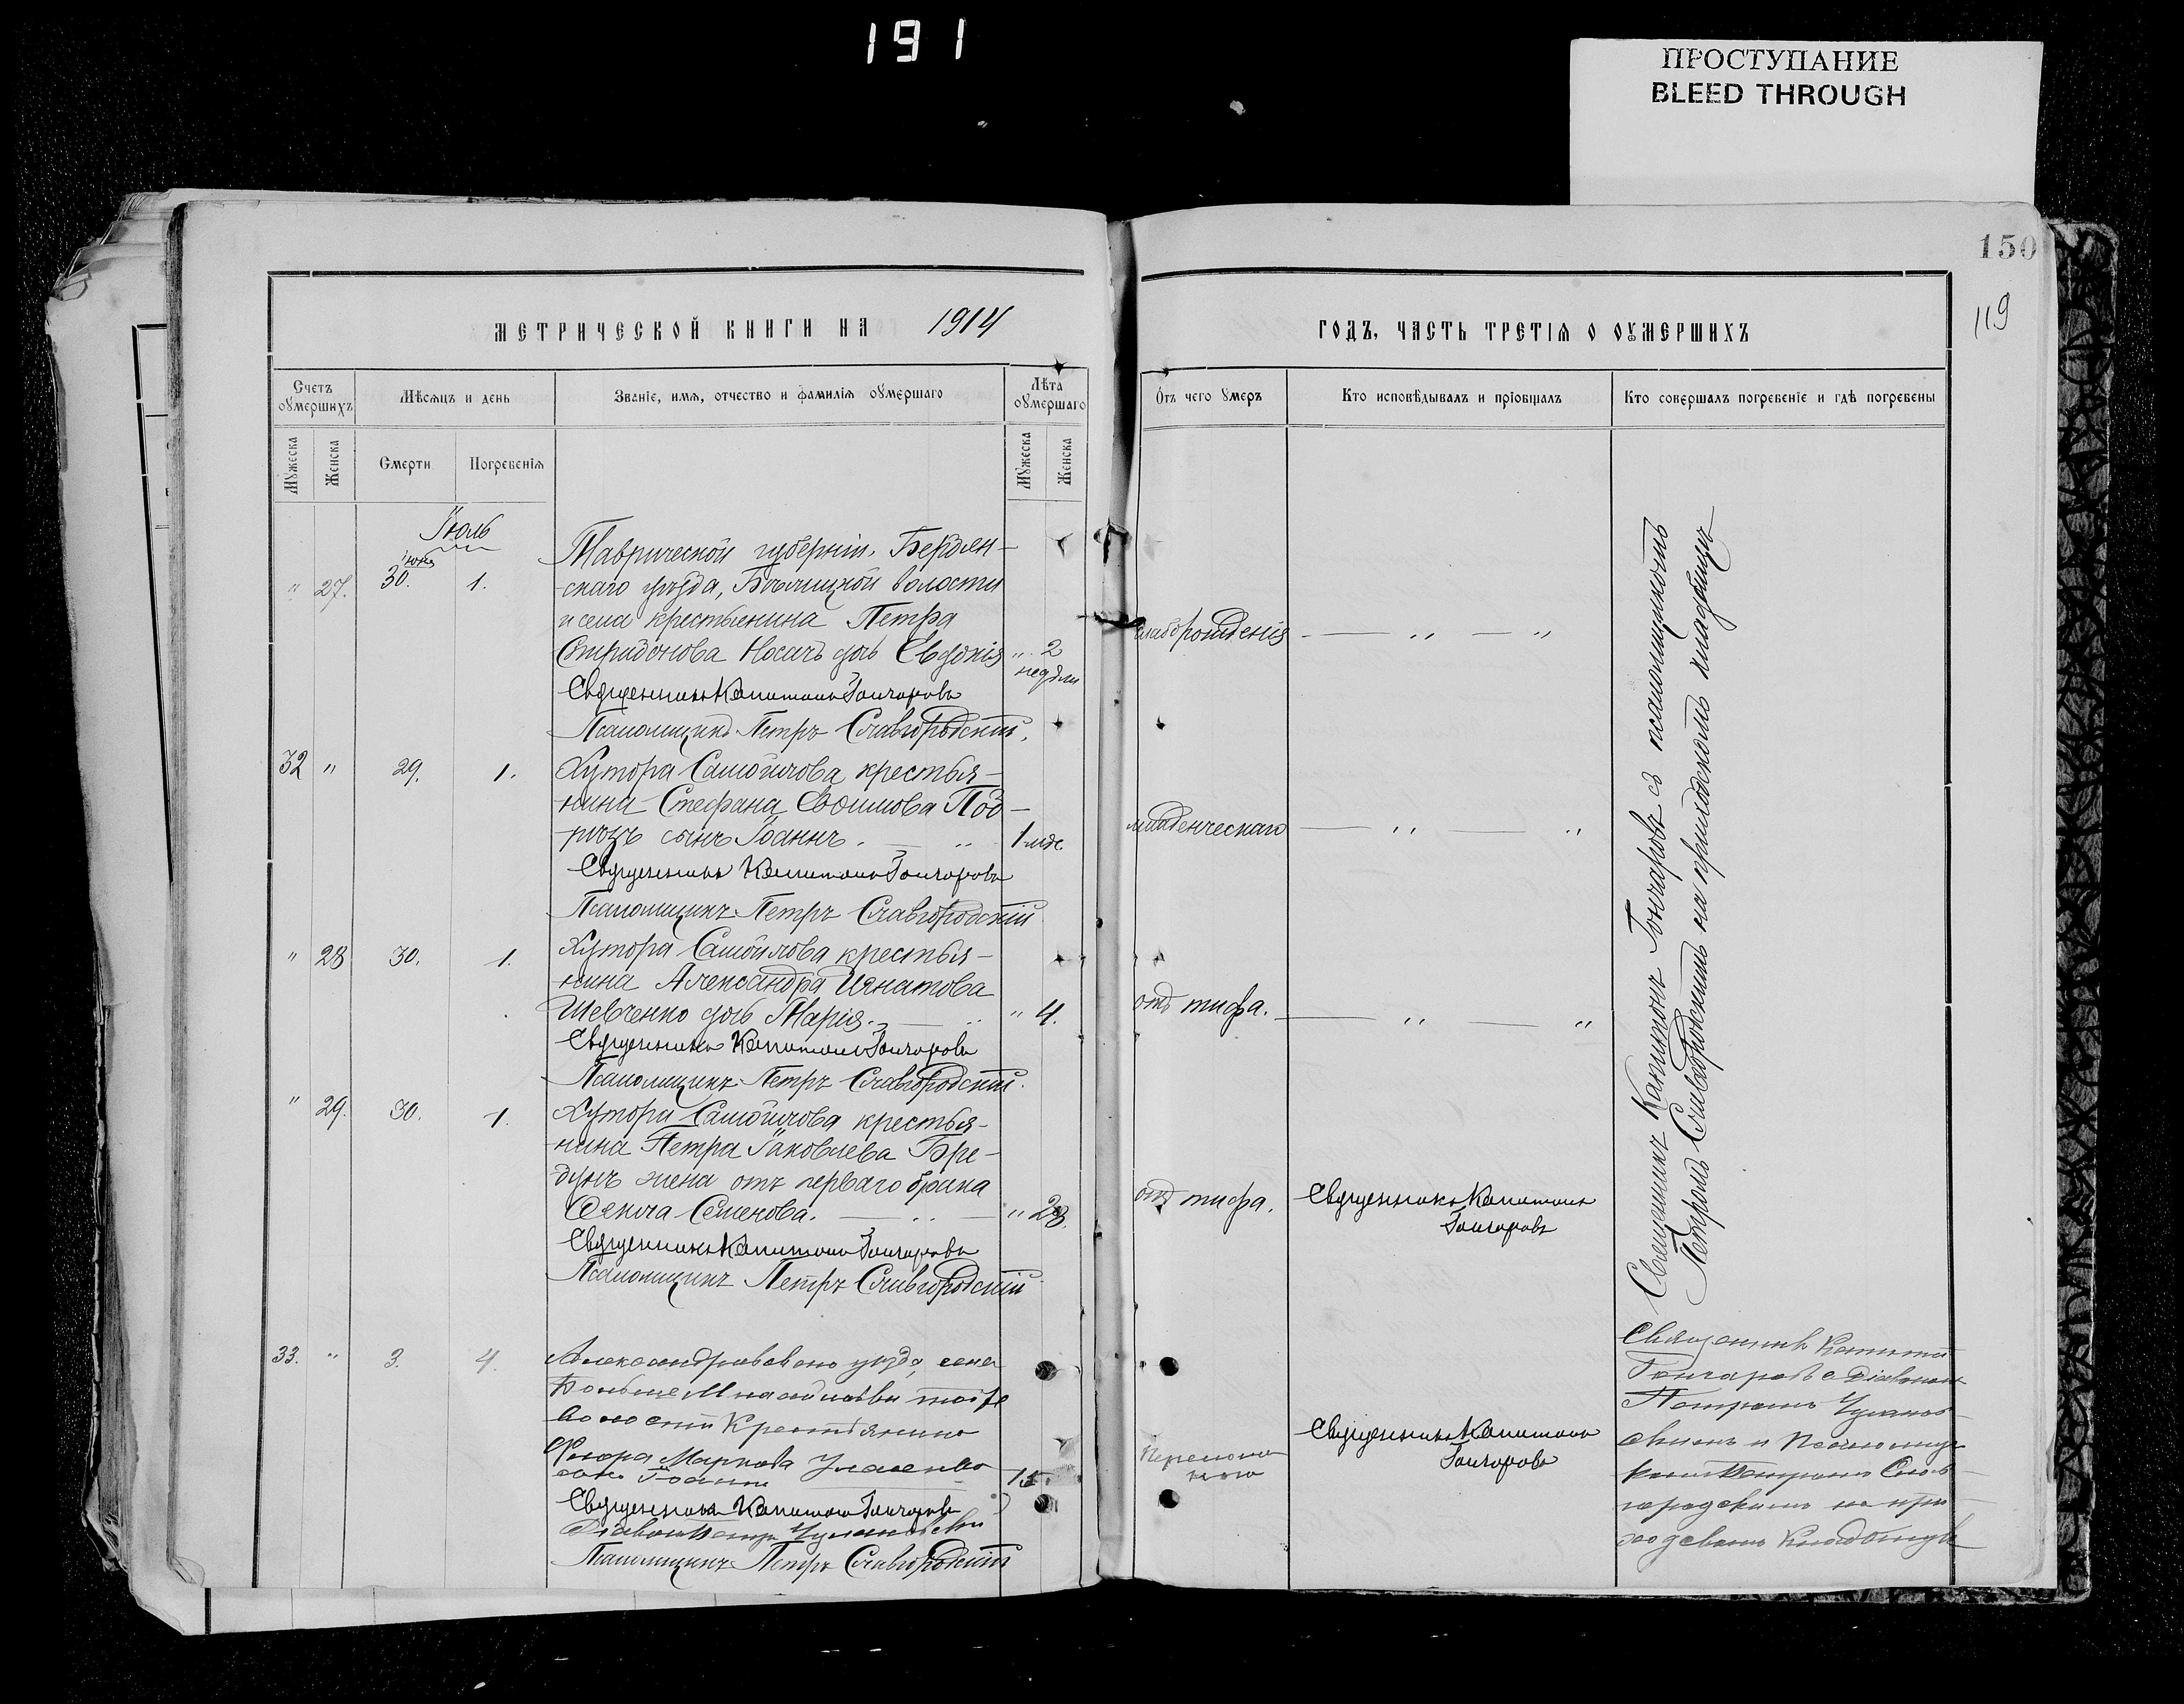 191
ПРОСТУПАНИЕ
BLEED THROUGH
150
119
МЕТРИЧЕСКОЙ КНИГИ НА 1914
ГОДЪ, ЧАСТЬ ТРЕТІЯ О ОУМЕРШИХЪ
Счетъ оумершихъ
Мѣсяцъ и день
Званіе, имя, отчество и фамилія оумершаго
Лѣта оумершаго
Мужеска
Женска
Смерти
Погребенія
Мужеска
Женска
Отъ чего умеръ
Кто исповѣдывалъ и пріобщалъ
Кто совершалъ погребеніе и гдѣ погребены
Іюль
" 27. іюня 30. 1.
Таврической губерніи, Бердян-
скаго уѣзда, волости
и села крестьянина Петра
Спиридонова Носачъ дочь Евдокія " 2
недѣли
Священникъ Капитонъ Гончаровъ
Псаломщикъ Петръ Славгородскій.
слаборожденія — " — "
32 " 29. 1.
Хутора Самойлова крестья-
нина Стефана Евѳимова Под-
сынъ Іоаннъ. — " 1 мѣс.
Священникъ Капитонъ Гончаровъ
Псаломщикъ Петръ Славгородскій
младенческаго — " — "
" 28 30. 1.
Хутора Самойлова крестья-
нина Александра Игнатова
Шевченко дочь Марія. — " " 4.
Священникъ Капитонъ Гончаровъ
Псаломщикъ Петръ Славгородскій.
отъ тифа. — " — "
" 29. 30. 1.
Хутора Самойлова крестья-
нина Петра Іаковлева Бре-
дунъ жена отъ перваго брака
Ѳекла Семенова. — " — " 28.
Священникъ Капитонъ Гончаровъ
Псаломщикъ Петръ Славгородскій
отъ тифа.
Священникъ Капитонъ
Гончаровъ
Священникъ Капитонъ Гончаровъ съ псаломщикомъ
Петромъ Славгородскимъ на приходскомъ кладбищѣ
33. " 3. 4.
уѣзда, села
той же
волости крестьянинъ
Маркова
Священникъ Капитонъ Гончаровъ
Діаконъ Петръ
Псаломщикъ Петръ Славгородскій
Священникъ Капитонъ
Гончаровъ
Священникъ Капитонъ
Гончаровъ с Діакономъ
Петромъ
и Псаломщи-
комъ Петромъ Слав-
городскимъ на при-
ходскомъ кладбищѣ